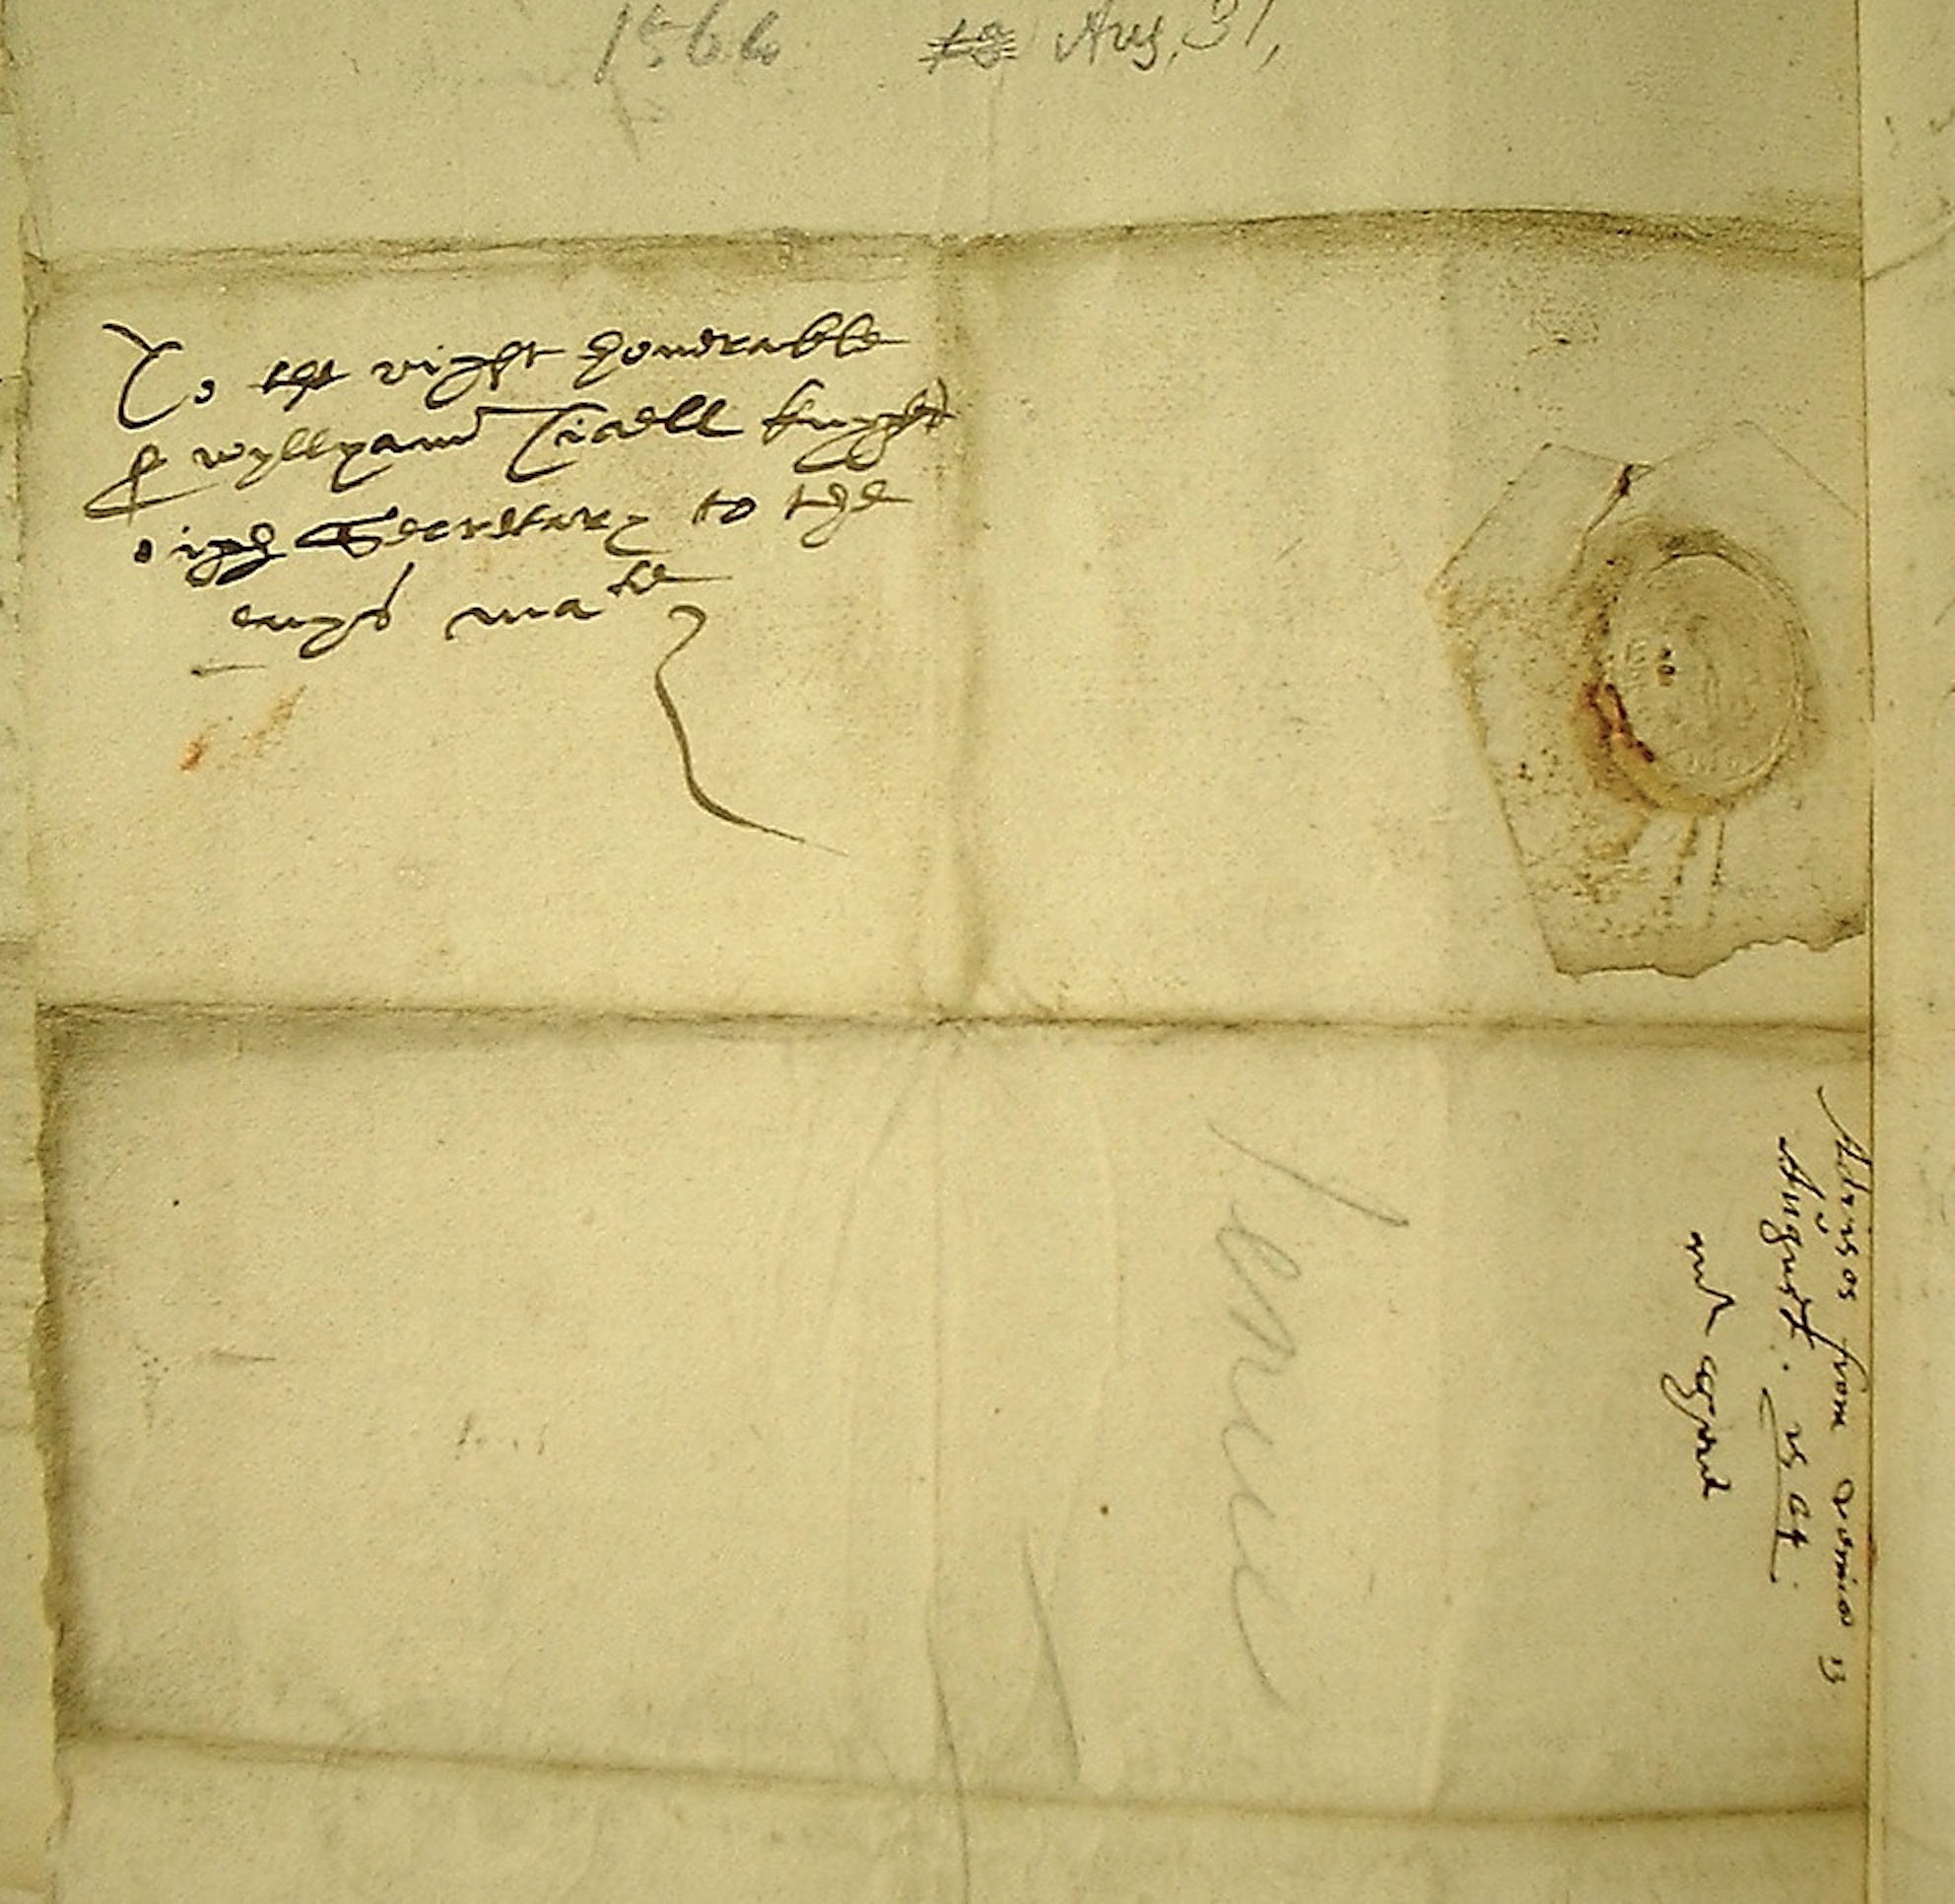 1566 Aug. 31,
To the right honorable
Sr wyllyam Ciscell knyght
Secretary to the
quenes matie
Advises from Venice 13
August. 1564
Venice